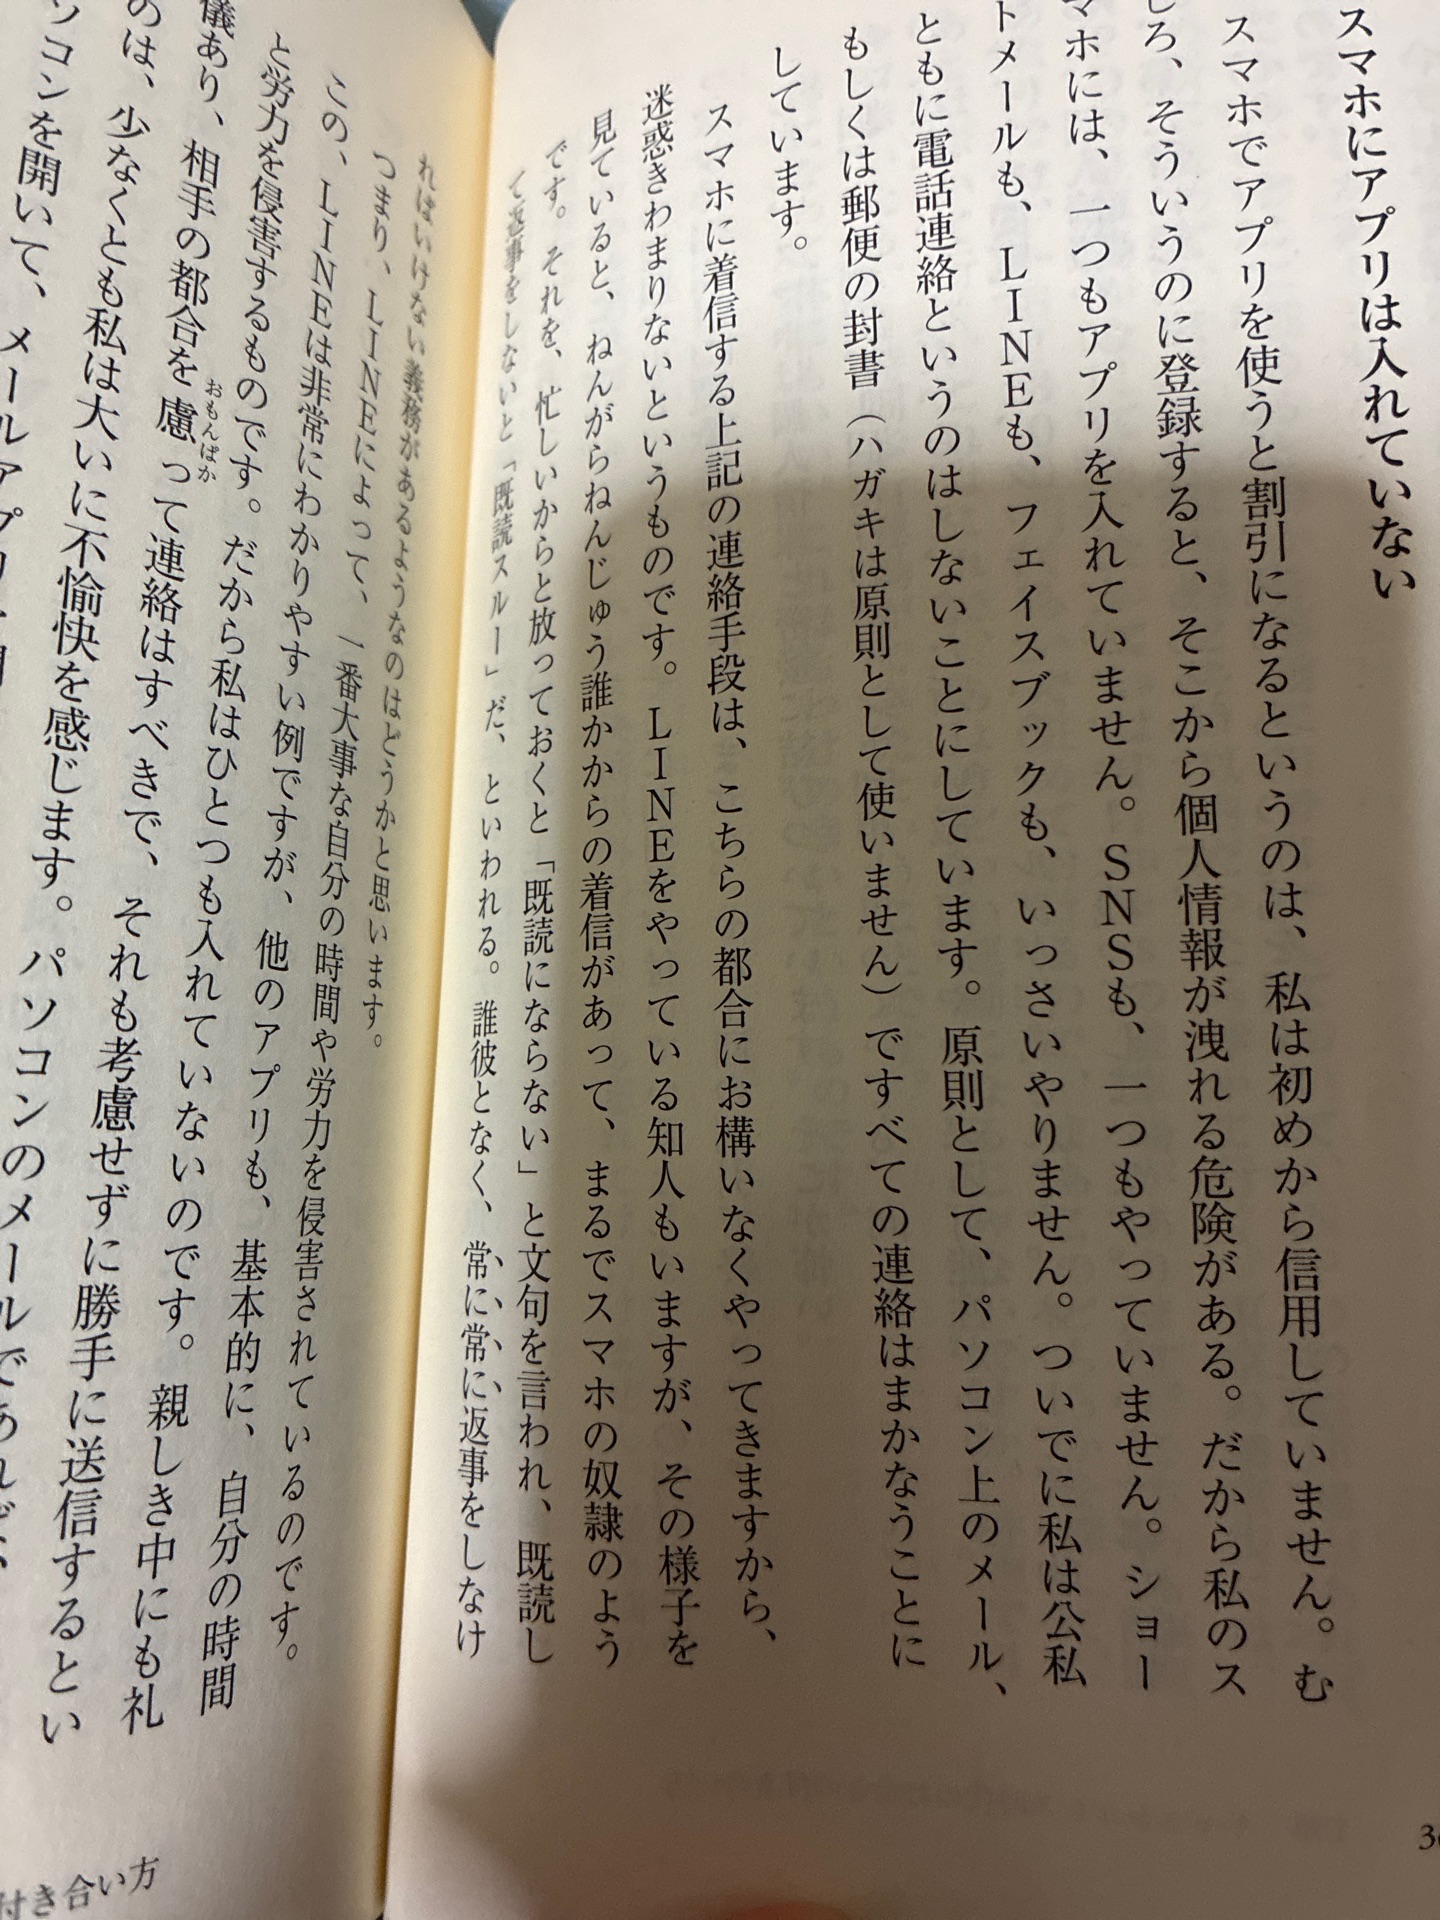 スマホにアプリは入れていない
スマホでアプリを使うと割引になるというのは、私は初めから信用していません。む
しろ、そういうのに登録すると、そこから個人情報が洩れる危険がある。だから私のス
マホには、一つもアプリを入れていません。SNSも、一つもやっていません。ショー
トメールも、LINEも、フェイスブックも、いっさいやりません。ついでに私は公私
ともに電話連絡というのはしないことにしています。原則として、パソコン上のメール、
もしくは郵便の封書（ハガキは原則として使いません）ですべての連絡はまかなうことに
しています。
スマホに着信する上記の連絡手段は、こちらの都合にお構いなくやってきますから、
迷惑きわまりないというものです。LINEをやっている知人もいますが、その様子を
見ていると、ねんがらねんじゅう誰かからの着信があって、まるでスマホの奴隷のよう
です。それを、忙しいからと放っておくと「既読にならない」と文句を言われ、既読し
て返事をしないと「既読スルー」だ、といわれる。誰彼となく、常に常に返事をしなけ
ればいけない義務があるようなのはどうかと思います。
つまり、LINEによって、一番大事な自分の時間や労力を侵害されているのです。
この、LINEは非常にわかりやすい例ですが、他のアプリも、基本的に、自分の時間
と労力を侵害するものです。だから私はひとつも入れていないのです。親しき中にも礼
儀あり、相手の都合を慮おもんぱかって連絡はすべきで、それも考慮せずに勝手に送信するとい
のは、少なくとも私は大いに不愉快を感じます。パソコンのメールであれば、
ソコンを開いて、メールアプリ
付き合い方